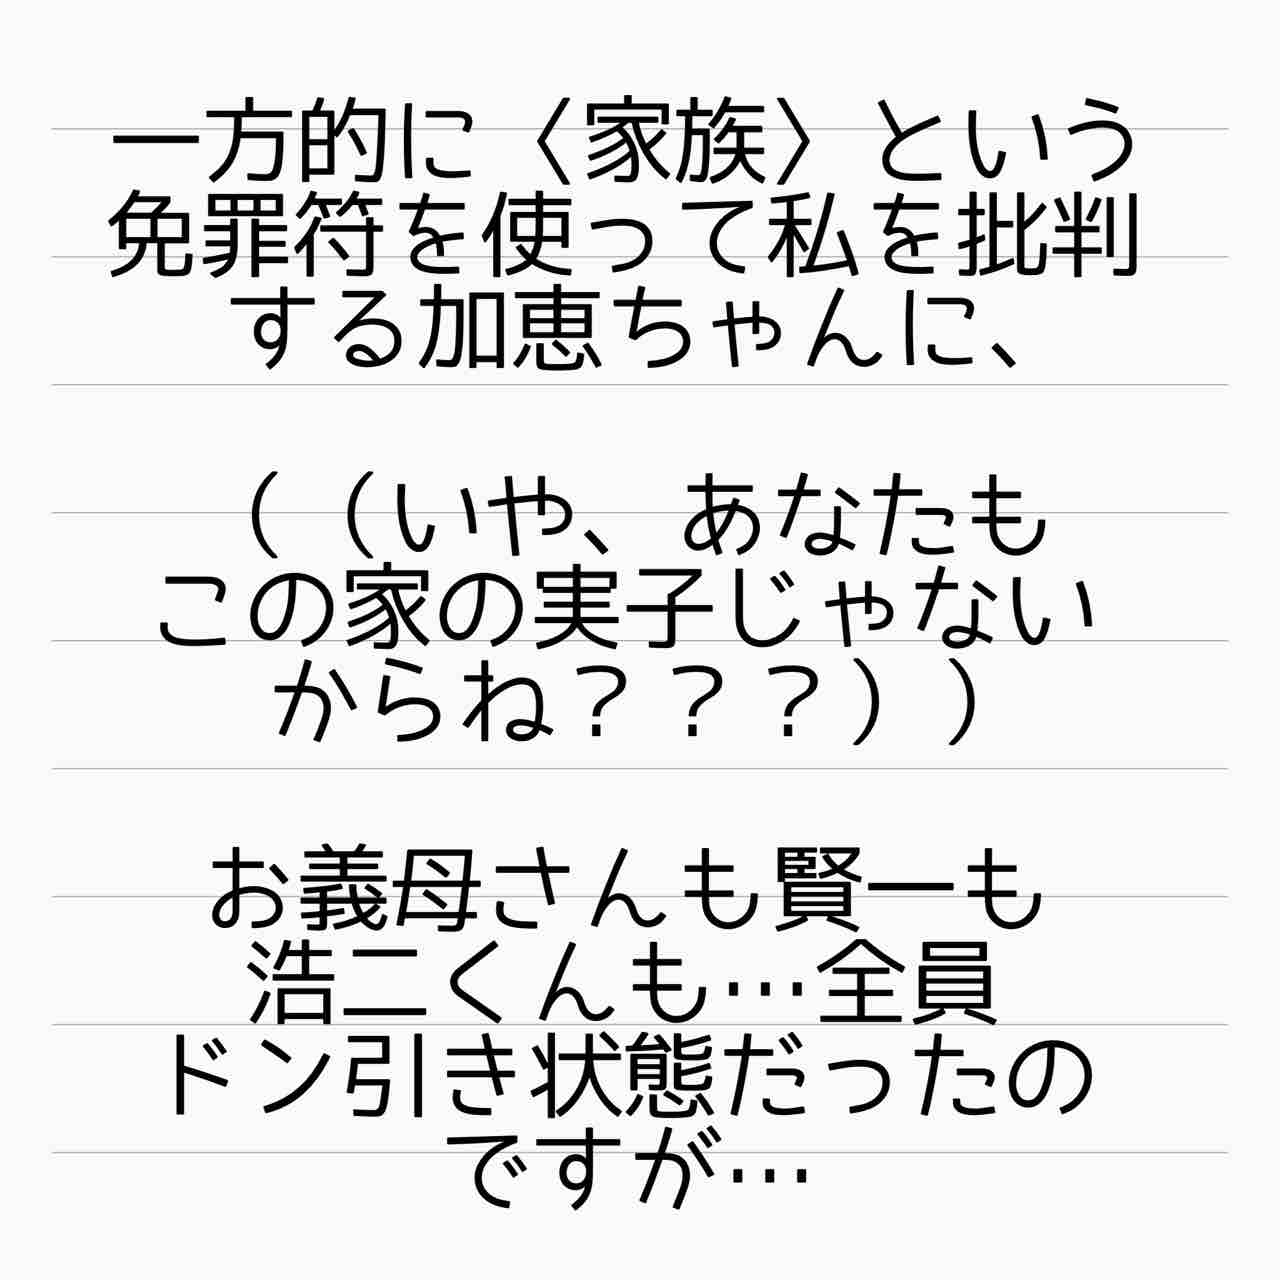 一方的に〈家族〉という
免罪符を使って私を批判
する加恵ちゃんに、
（（いや、あなたも
この家の実子じゃない
からね？？？））
お義母さんも賢一も
浩二くんも…全員
ドン引き状態だったの
ですが…